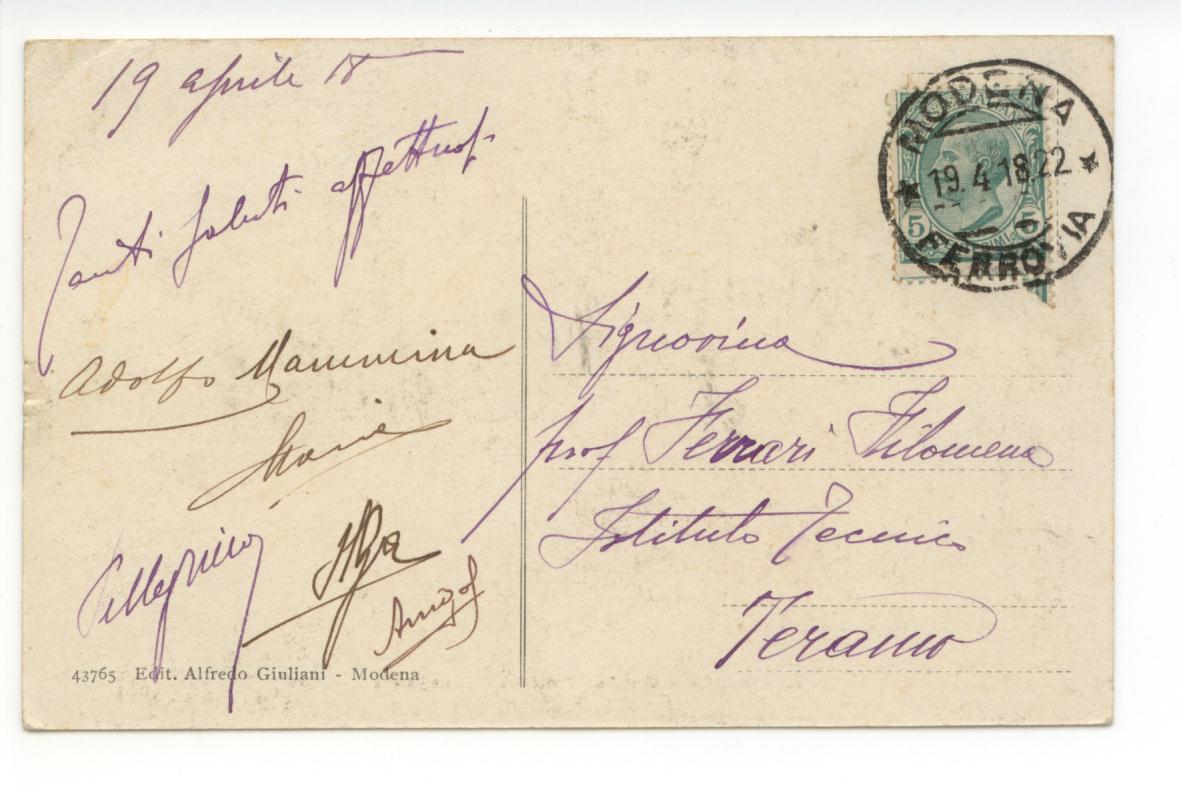 19 aprile 18
Tanti saluti affettuosi
Adolfo Mammina
Maria
Pellegrino
43765 Edit. Alfredo Giuliani - Modena
MODENA
19.4.18.22
FERROVIA
5 5
Signorina
prof Ferrari Filomena
Istituto Tecnico
Teramo